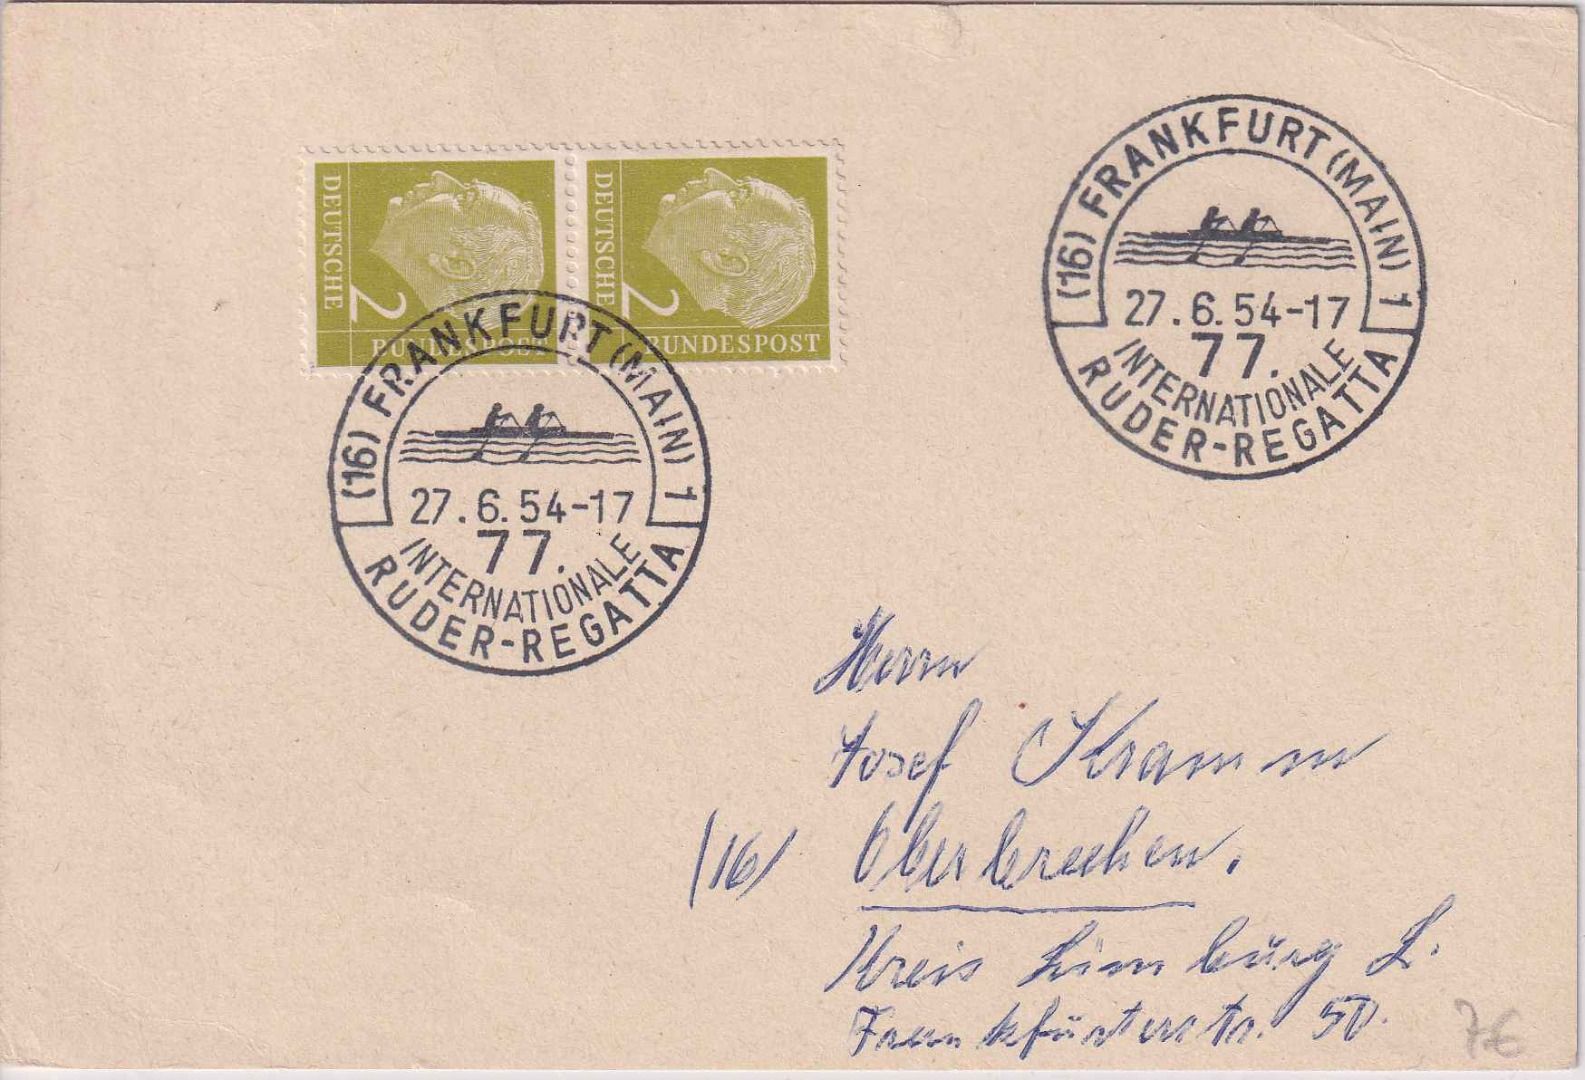 DEUTSCHE
2
BUNDESPOST
DEUTSCHE
2
BUNDESPOST
(16) FRANKFURT (MAIN) 1
27.6.54-17
77.
INTERNATIONALE
RUDER-REGATTA
(16) FRANKFURT (MAIN) 1
27.6.54-17
77.
INTERNATIONALE
RUDER-REGATTA
Herrn
Josef Kramm
(16) Oberbrechen.
Kreis Limburg L.
Frankfurterstr. 50.
7€